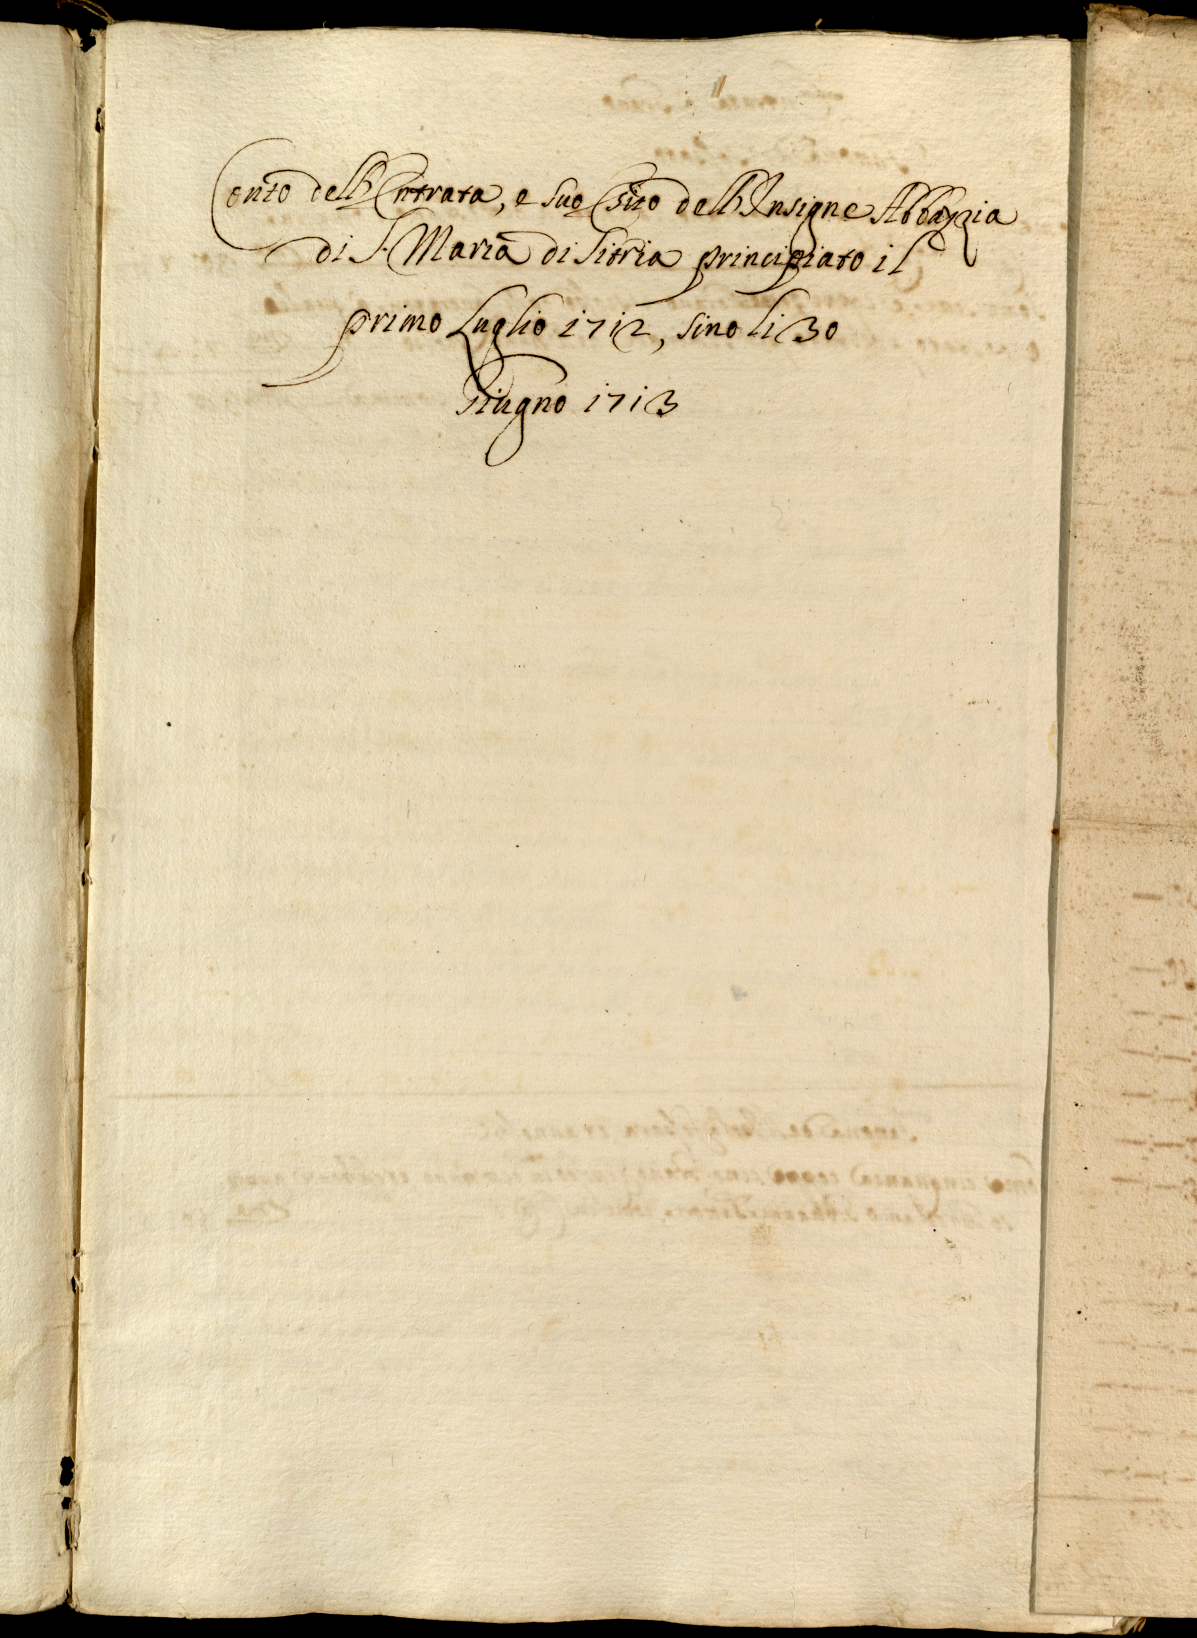 Conto dell'Entrata, e suo Esito dell'Insigne Abbazia
di S. Maria di Sitria principiato il
primo Luglio 1712, sino li 30
Giugno 1713